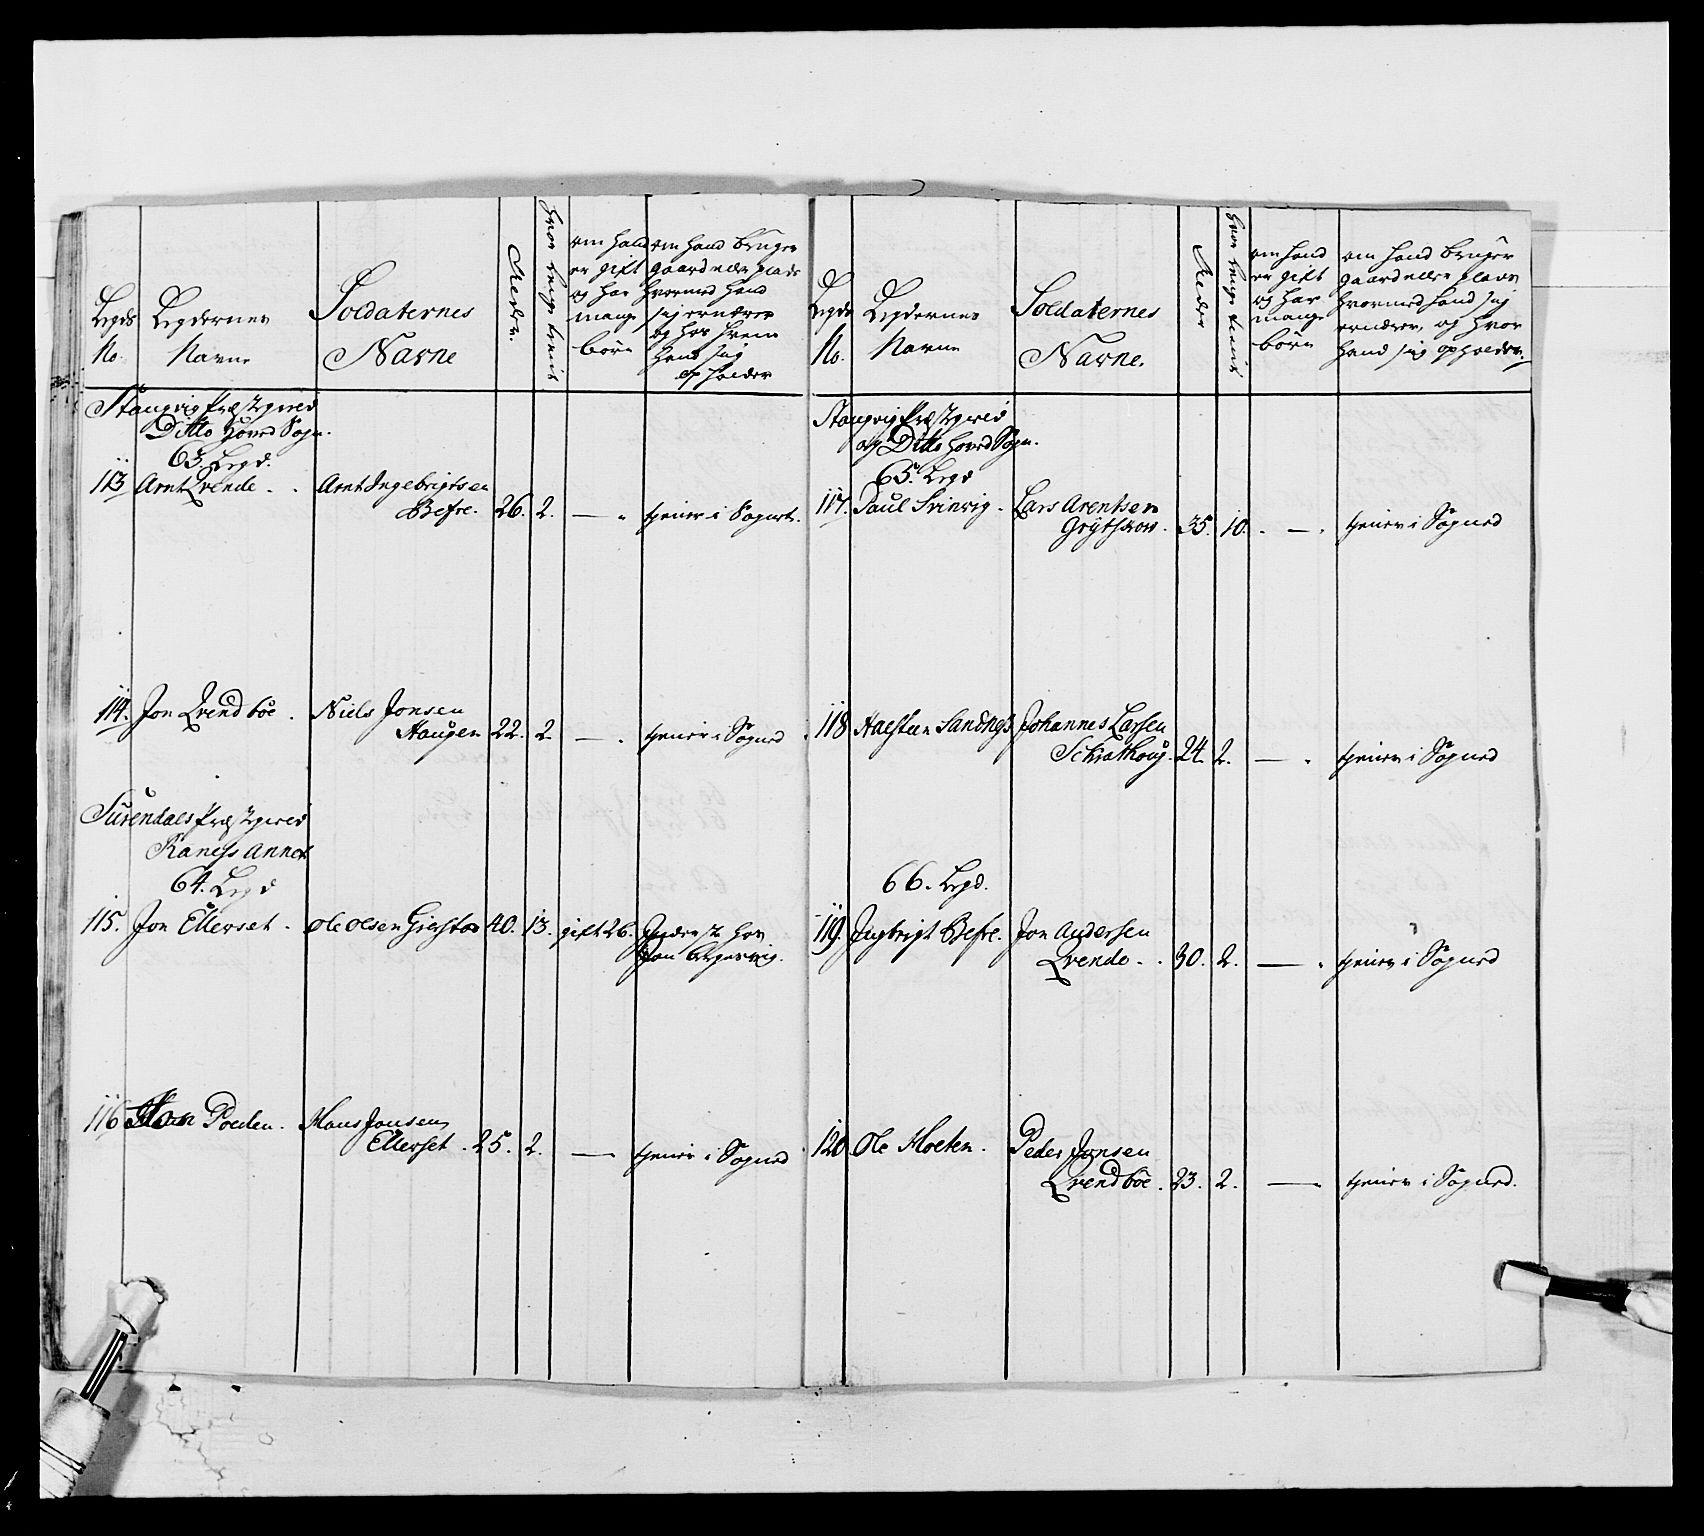 Legds
No.
Legdernes
Navne
Soldaternes
Navne
Alder.
hvor lenge tient
om hand
er gift
og har
mange
börn
om hand bruger
gaard eller plads
hvormed hand
sig ernærer
og hos hvem
hand sig
opholder
Stangvig Præstegield
Ditto Hoved Sogn.
63. Legd.
113 Arnt Qvende . . Arnt Ingebrigtsen
Befre. 26. 2. — . tjener i Sognet.
114. Jon Qvendböe . Niels Jonsen
Haugen 22. 2 — . tjener i Sogned
Surendals Præstegield
Ranefs Annex
64. Legd
115. Jon Ellerset . Ole Olsen 40. 13. gift 2 b. Inderst hos
Jon
116 Poelen . Hans Jonsen
Ellerset . 25. 2. — tjener i Sogned
Legds
No.
Legdernes
Navne
Soldaternes
Navne.
Alder
hvor lenge tient
om hand
er gift
og har
mange
börn
om hand bruger
gaard eller plads
hvormed hand sig
ernærer, og hvor
hand sig opholder.
Stangvig Præstegield
og Ditto Hoved Sogn.
65. Legd
117. Paul Svinvig . Lars Arentsen
Grÿtskow . 35. 10. . — . tjener i Sogned
118 Halsten Sandnes Johannes Larsen
24. 2. — . tjener i Sogned
66. Legd.
119. Ingbrigt Befre. Jon Andersen
Qvende . . 30. 2. — . tjener i Sogned
120 Ole Holten . Peder Jonsen
Qvendböe . 23. 2. — . tjener i Sogned.